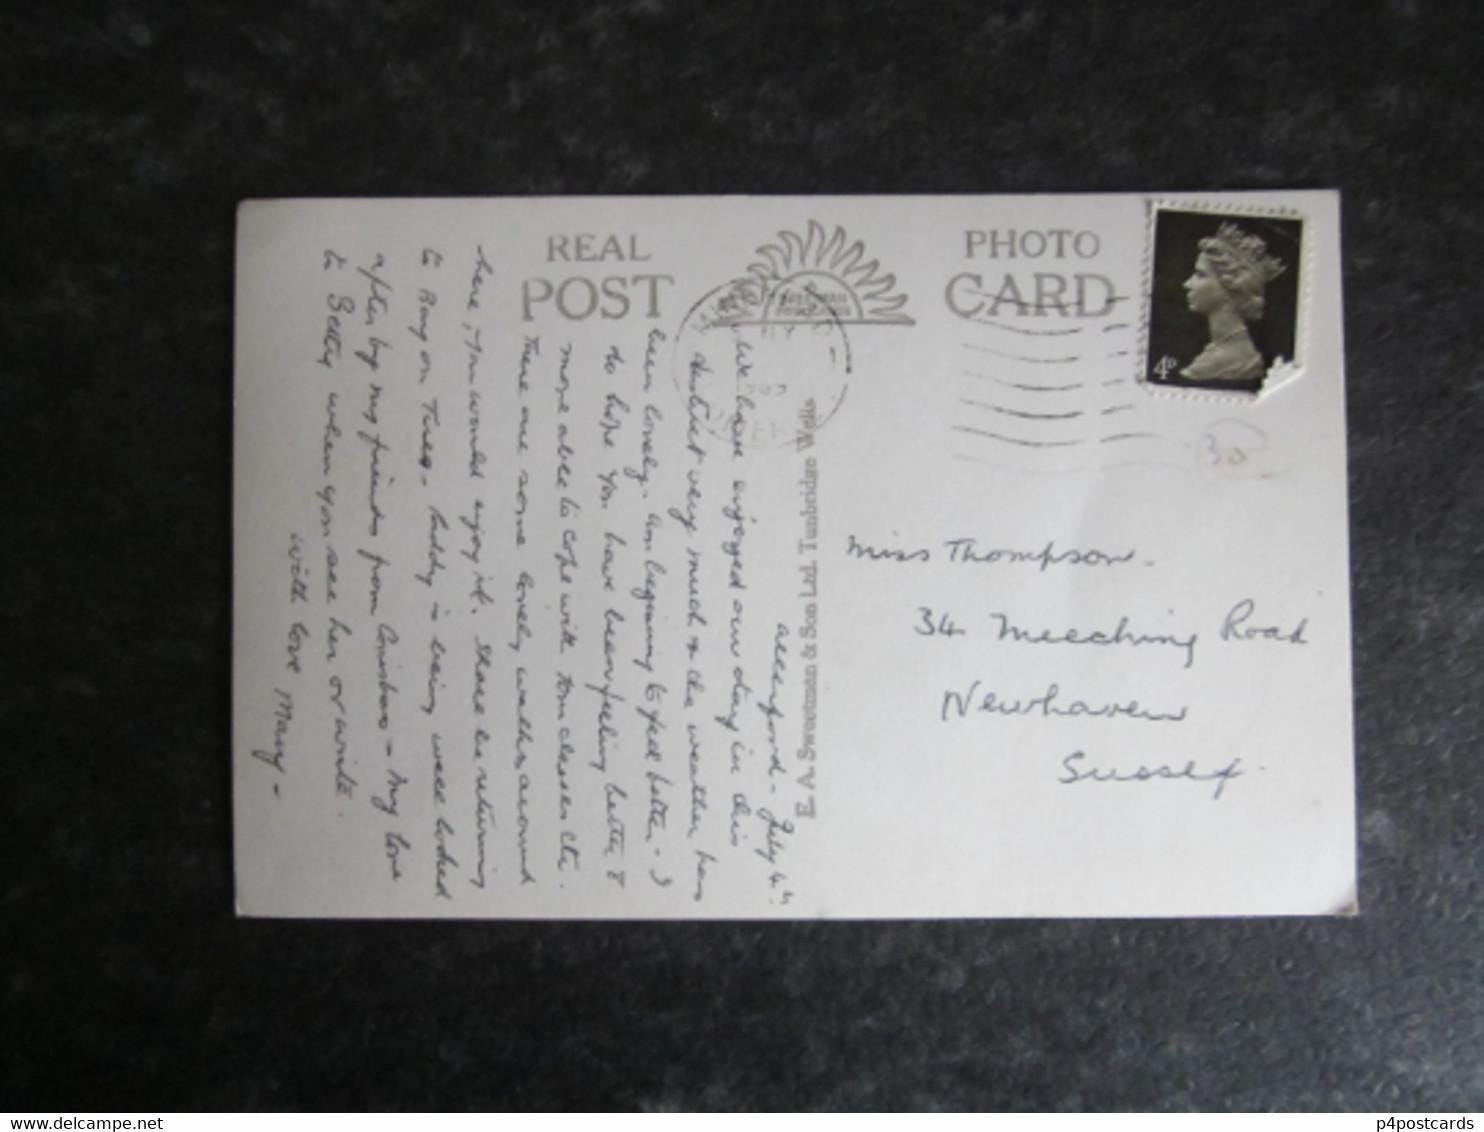 REAL PHOTO
POST CARD
4D
30
E. A. Sweetman & Son Ltd. Tunbridge Wells
Allerford - July 4th.
We have enjoyed our stay in this
district very much & the weather has
been lovely. Am beginning to feel better - I
do hope you have been feeling better &
more able to cope with Tom classes etc.
There are some lovely walks around
here, you would enjoy it. Shall be returning
to Ray on Tues - Paddy is being well looked
after by my friends from - My love
to Betty when you see her or write.
with love Mary -
Miss Thompson.
34 Meeching Road
Newhaven
Sussex.
www.delcampe.net
p4postcards